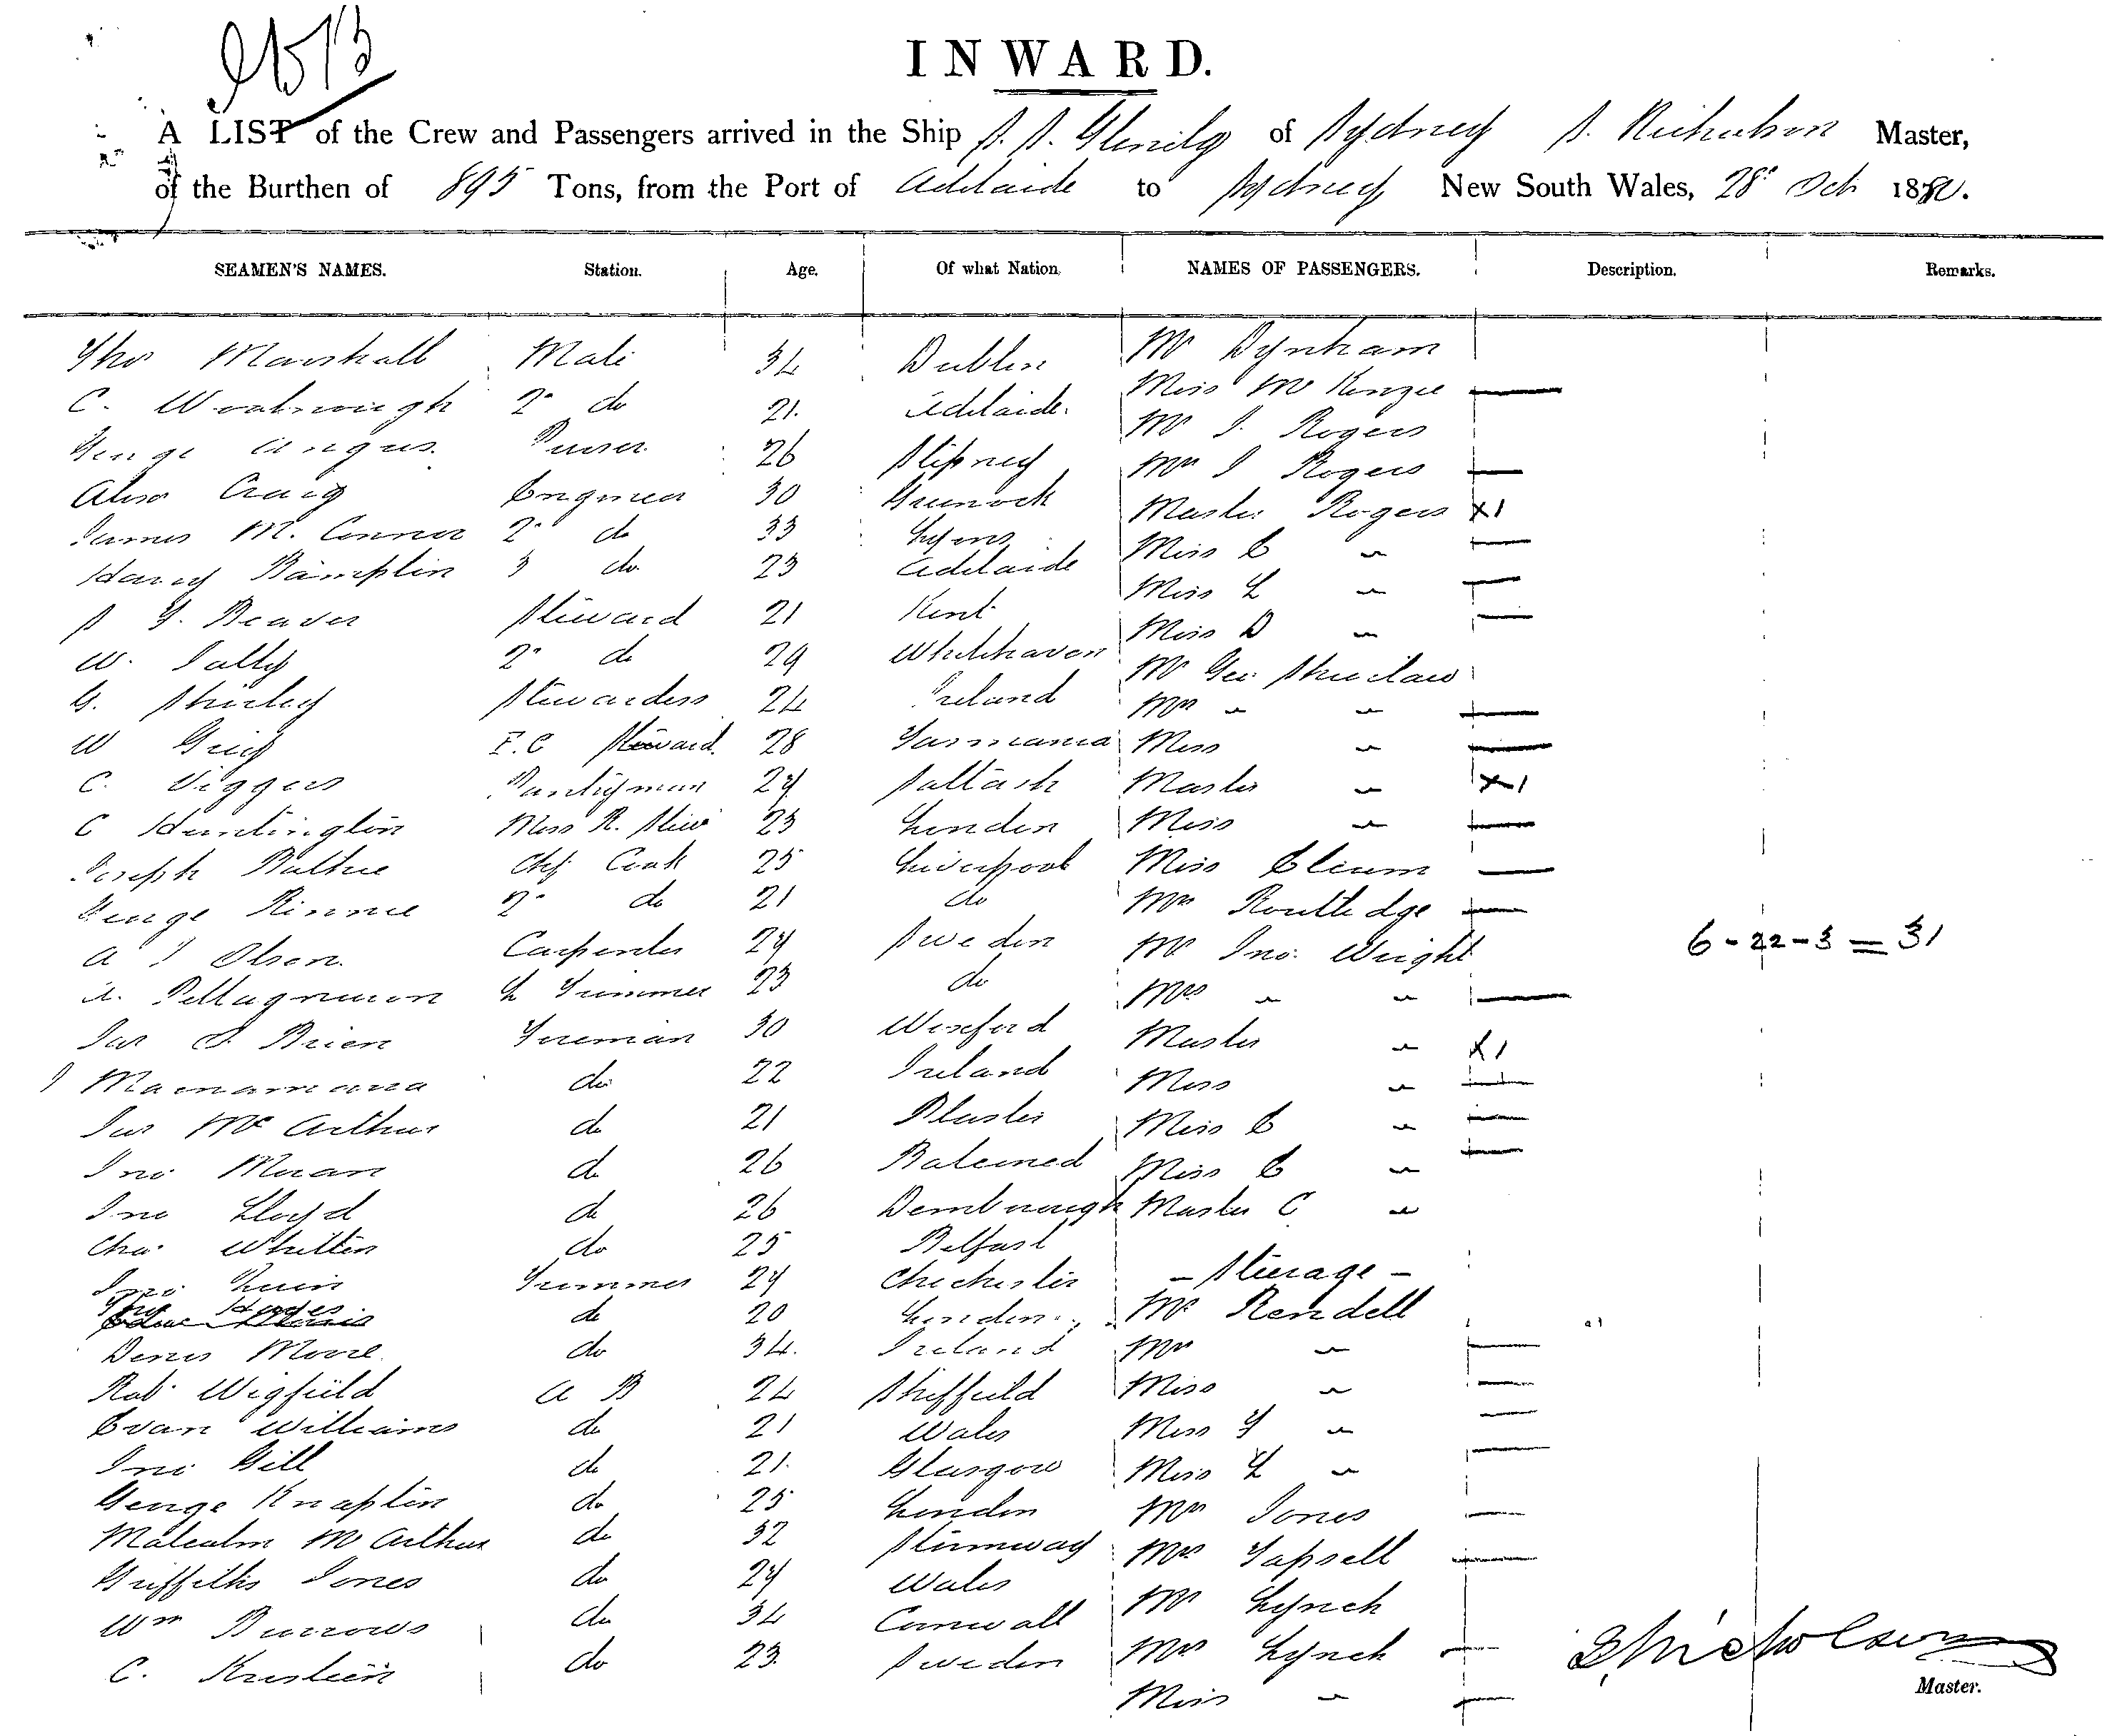 INWARD.
A LIST of the Crew and Passengers arrived in the Ship S. S. Glenelg of Sydney S. Nicholson Master,
of the Burthen of 895 Tons, from the Port of Adelaide to Sydney New South Wales, 28 Oct 1880.
SEAMEN'S NAMES. Station. Age. Of what Nation. NAMES OF PASSENGERS. Description. Remarks.
Thos Marshall Mate 34 Dublin Mr Dynham
C. 2 do 21. Adelaide. Miss McKenzie
George Angus. Purser 26 Stepney Mr J. Rogers
Alexr Craig Engineer 30 Greenock Mrs J Rogers
James M. Connor 2 do 33 Lyons Master Rogers x1
Harry Bamplin 3 do. 23 Adelaide Miss E "
S Y. Beaver Steward 21 Kent Miss L "
W. 2 do 29 Whitehaven Miss D "
G. Shirley Stewardess 24 Ireland Mr Geo.
W F.C Steward. 28 Tasmania Mrs " "
C. Viggers Pantryman 24 Saltash Miss "
C Huntington Mess R. Stew 23 London Master " x1
Joseph Cook 25 Liverpool Miss "
George Kinnie 2 do 21 do Miss
A J Olsen. Carpenter 24 Sweden Mrs Routledge
A. L Trimmer 23 do Mr Jno. Wright
6-22-3=31
Jas O. Brien Fireman 30 Wexford Mrs " "
J Macnamara do 22 Ireland Master " x1
Jas McArthur do 21 Miss "
Jno Moran do 26 Miss E "
Jno Lloyd do 26 Miss E "
Chas Whitten do 25 Belfast Master C "
Jno Trimmer 24 Chichester - Steerage -
do 20 London. Mr Rendell
Denis Moore. do 34. Ireland Mrs "
Rob Wigfield A B 24 Sheffield Miss "
Evan Williams do 21 Wales Miss Y "
Jno Gill do 21. Glasgow Miss L "
George Knaplin do 25 London Mrs Jones
Malcolm McArthur do 32 Mrs Tapsell
Griffiths Jones do 24 Wales Mr Lynch
Wm Burrows do 34 Cornwall Mrs Lynch
C. do 23. Sweden Miss "
S Nicholson
Master.